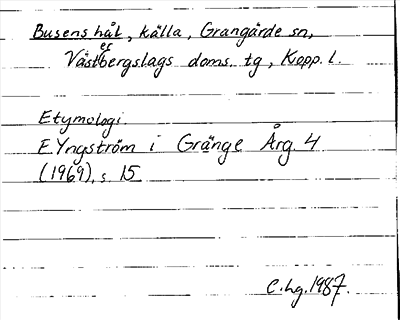 Busens hål, källa, Grangärde sn,
Västerbergslags doms. tg, Kopp. l.
Etymologi
E. Yngström i Gränge Årg. 4
(1969), s. 15
C.hg. 1987.